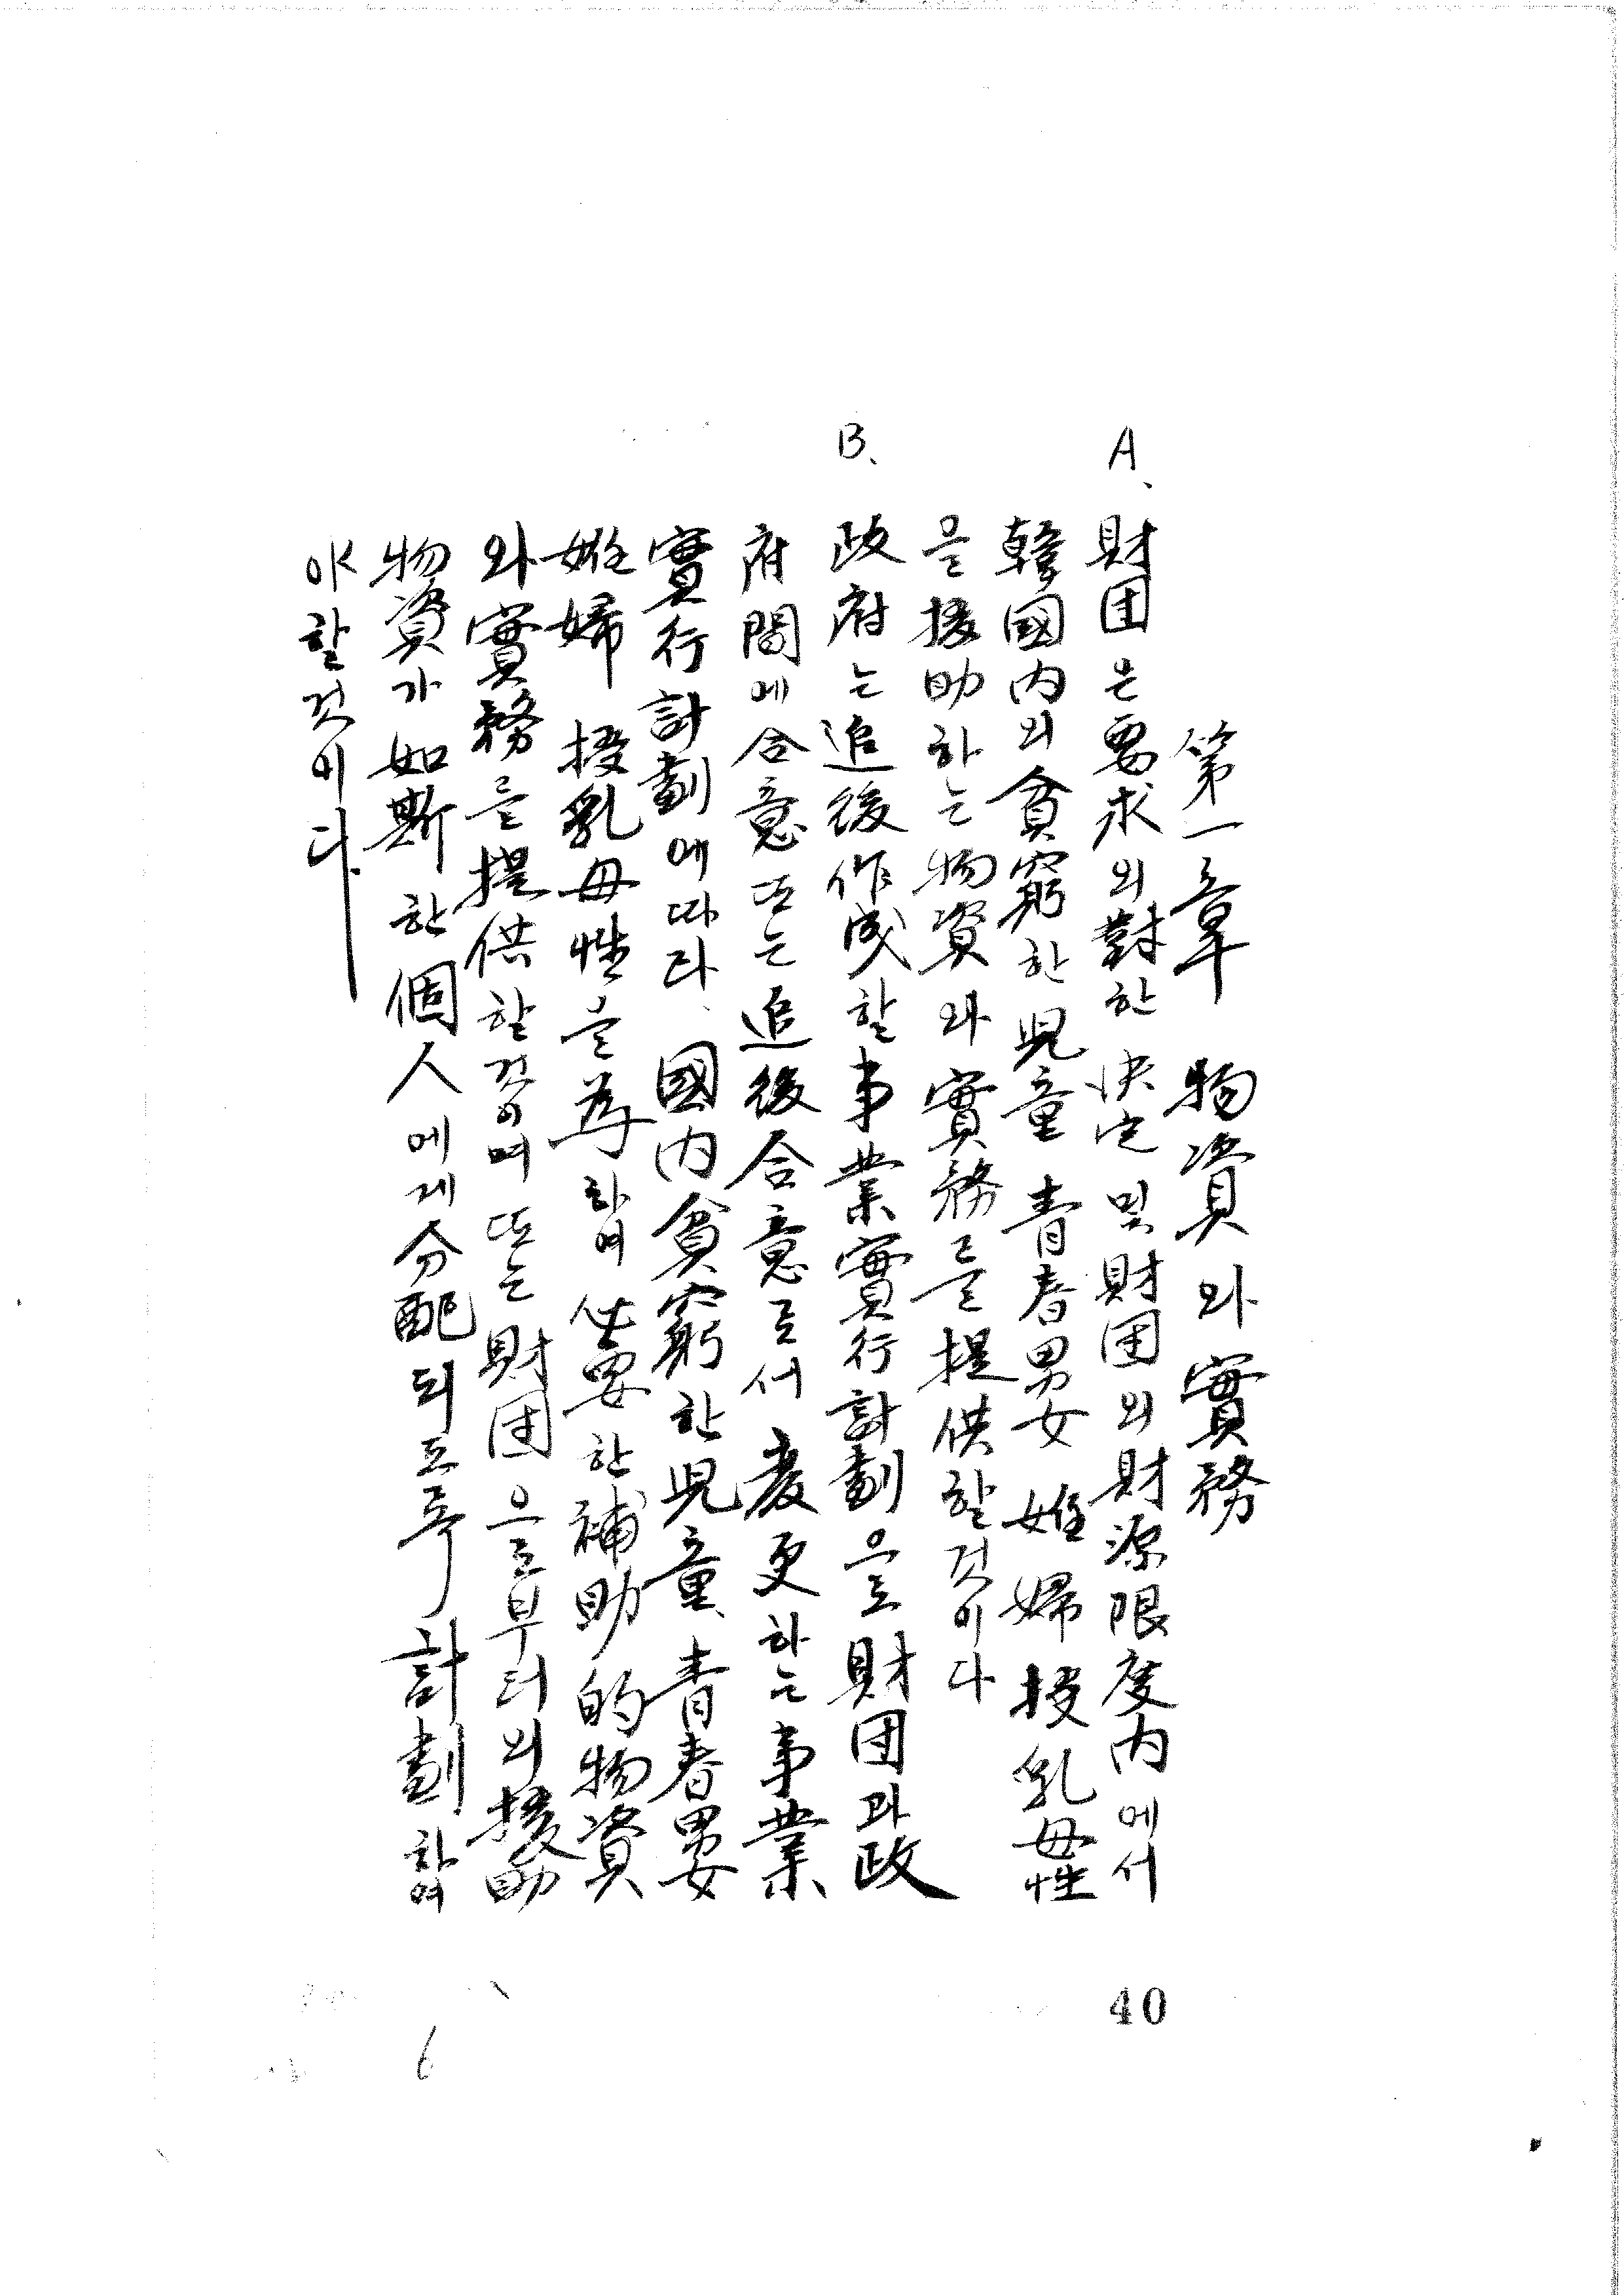 第一章 物資와 實務
A、財团은 要求의 對한 決定 및 財団의 財源限度内에서
韓國内의 貧窮한 児童 青春男女 姙婦 授乳母性
을 援助하는 物資와 實務를 提供할것이다
B、政府는 追後作成할 事業實行計劃으로 財団과 政
府間에 合意 또는 追後合意로서 変更하는 事業
實行計劃에 따라、國内 貧窮한 児童、青春男女
姙婦 授乳母性을 為하여 必要한 補助的 物資
와 實務를 提供할것이며 또는 財団으로부터의 援助
物資가 如斯한 個人에게 分配되도록 計劃하여
야 할것이다.
40
6